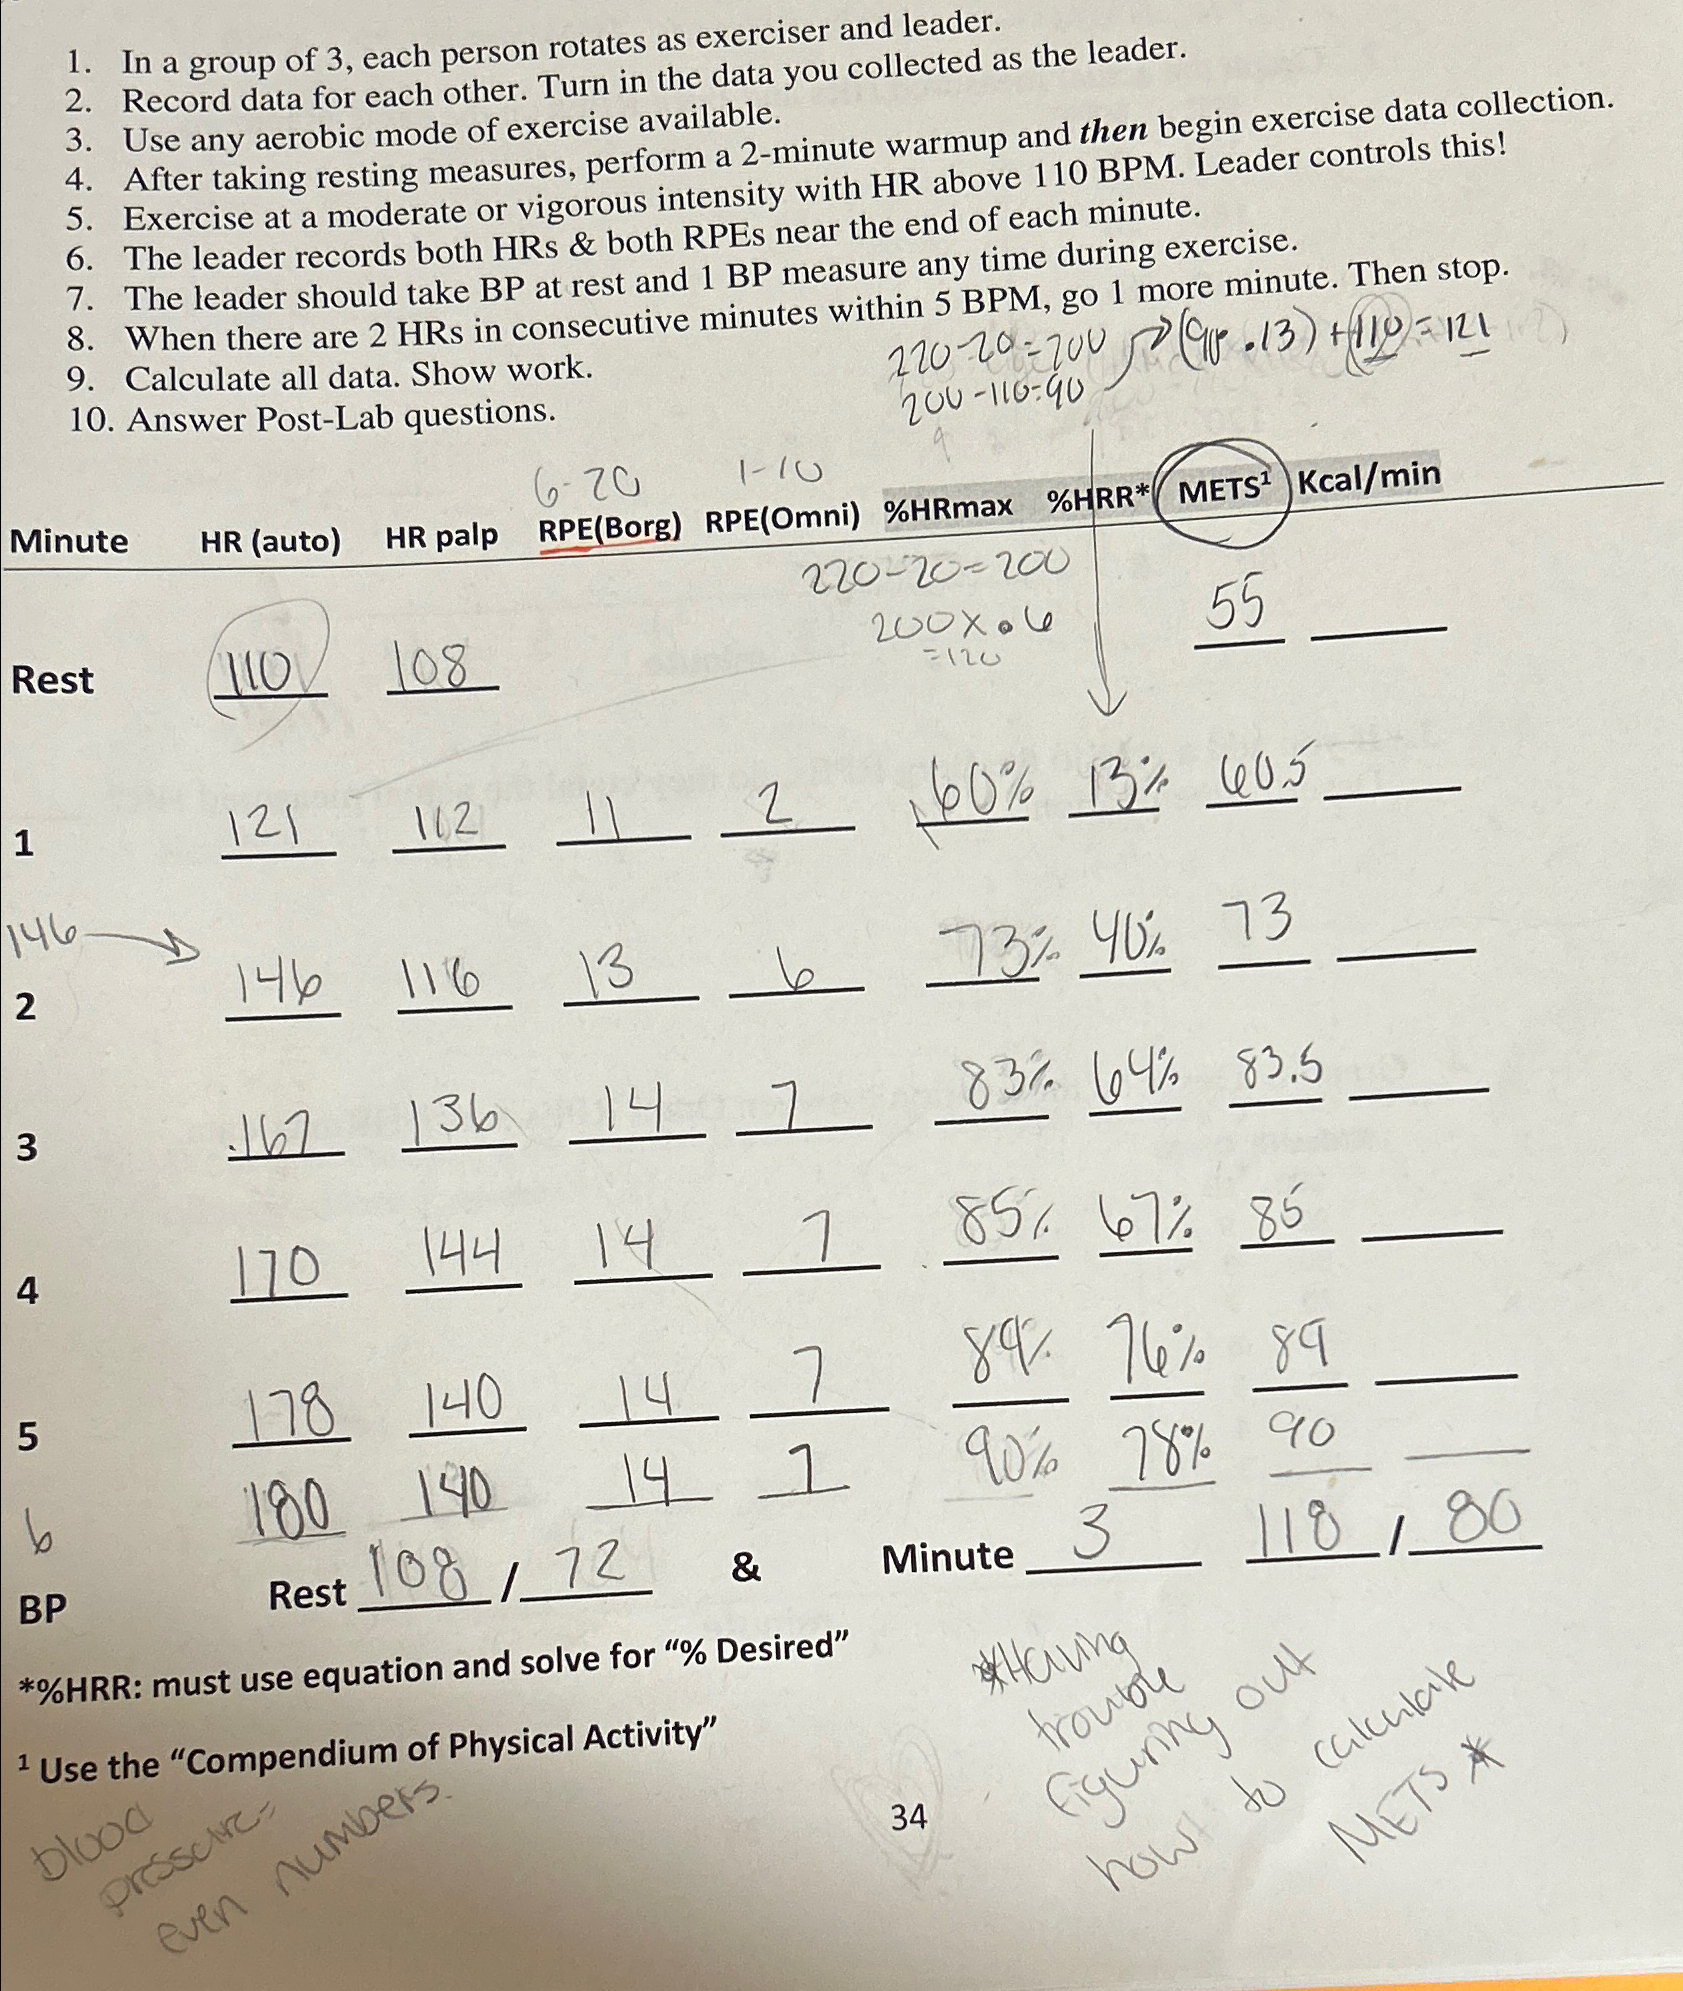 1. In a group of 3, each person rotates as exerciser and leader.
2. Record data for each other. Turn in the data you collected as the leader.
3. Use any aerobic mode of exercise available.
4. After taking resting measures, perform a 2-minute warmup and then begin exercise data collection.
5. Exercise at a moderate or vigorous intensity with HR above 110 BPM. Leader controls this!
6. The leader records both HRs & both RPEs near the end of each minute.
7. The leader should take BP at rest and 1 BP measure any time during exercise.
8. When there are 2 HRs in consecutive minutes within 5 BPM, go 1 more minute. Then stop.
9. Calculate all data. Show work.
10. Answer Post-Lab questions.
220-20=200 → (90 .13) + 110 = 121
200-110=90
6-20 1-10
Minute HR (auto) HR palp RPE(Borg) RPE(Omni) %HRmax %HRR* METS¹ Kcal/min
220-20=200
200x.6
=120
Rest 110 108 55
1 121 112 11 2 60% 13% 60.5
146 →
2 146 116 13 6 73% 40% 73
3 167 136 14 7 83% 64% 83.5
4 170 144 14 7 85% 67% 85
5 178 140 14 7 89% 76% 89
6 180 140 14 7 90% 78% 90
BP Rest 108 / 72 & Minute 3 118 / 80
*%HRR: must use equation and solve for “% Desired”
¹ Use the “Compendium of Physical Activity”
*Having
trouble
figuring out
how to calculate
METS *
blood
pressure=
even numbers.
34